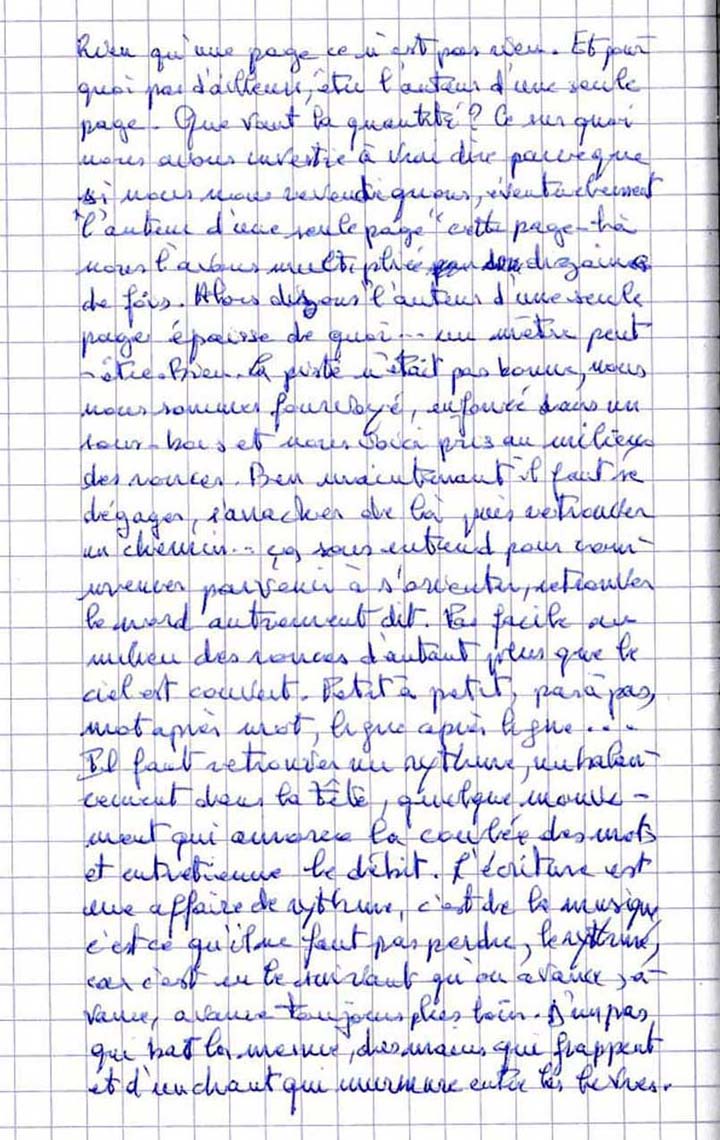 Rien qu'une page ce n'est pas rien. Et pour
quoi pas d'ailleurs, être l'auteur d'une seule
page. Que vaut la quantité ? Ce sur quoi
nous avons investie à vrai dire parceque
si nous nous revendiquons, éventuellement
"l'auteur d'une seule page" cette page-là
nous l'avons multipliée dizaines
de fois. Alors disons "l'auteur d'une seule
page épaisse de quoi... un mètre peut
-être. Bien. la piste n'était pas bonne, nous
nous sommes fourvoyé, enfoncé dans un
sous-bois et nous voici pris au milieu
des ronces. Ben maintenant il faut se
dégager, s'arracher de là puis retrouver
un chemin... ça sous entend pour com-
mencer parvenir à s'orienter, retrouver
le nord autrement dit. Pas facile au
milieu des ronces d'autant plus que le
ciel est couvert. Petit à petit, pas à pas,
mot après mot, ligne après ligne...
Il faut retrouver un rythme, un balan-
cement dans la tête, quelque mouve-
ment qui amorce la coulée des mots
et entretienne le débit. L'écriture est
une affaire de rythme, c'est de la musique
c'est ce qu'il ne faut pas perdre, le rythme,
car c'est en le suivant qu'on avance, a-
vance, avance toujours plus loin. D'un pas
qui bat la mesure, des mains qui frappent
et d'un chant qui murmure entre les lèvres.